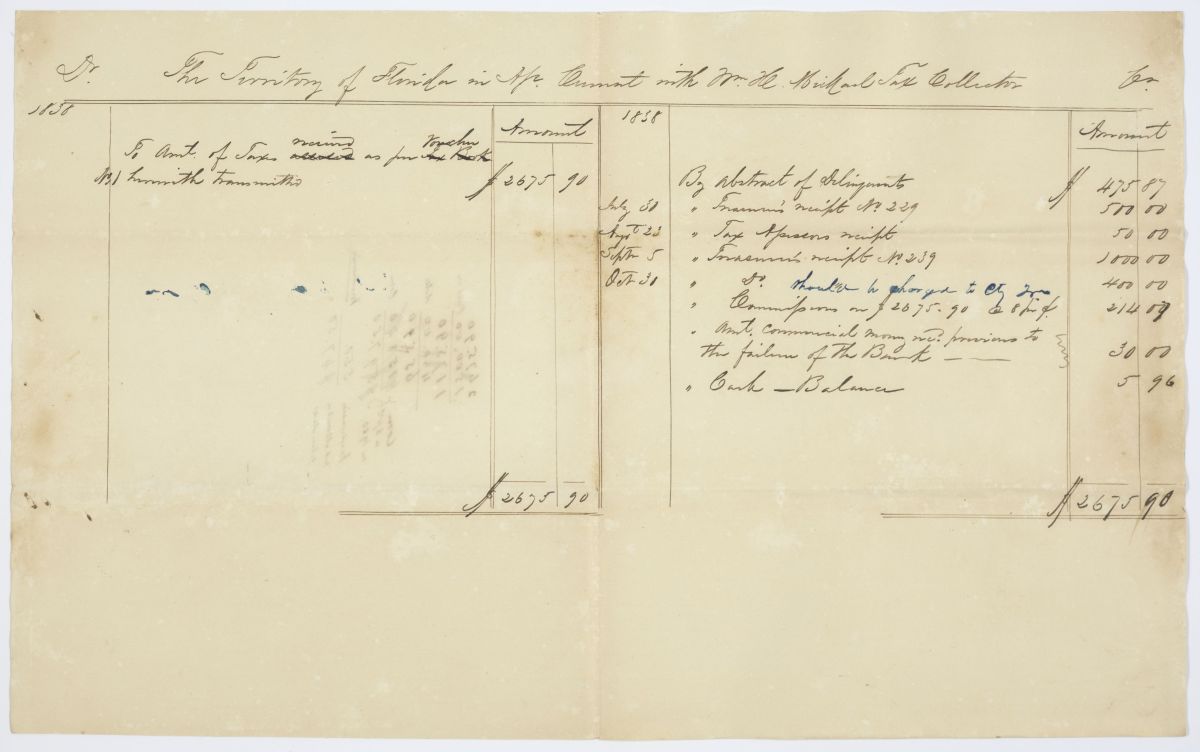 Dr. The Territory of Florida in Apc. Currant with Wm. H. Mickael Tax Collector Cr.
1838
Amount
received Voucher
To Amt. of Taxes assessed as per Tax Book
No. 1 herewith transmitted $ 2675 90
$ 2675 90
1838
Amount
By abstract of Delinquents $ 475 87
July 30 " Treasurer's receipt No. 229 500 00
Augt. 23 " Tax Assessors receipt 50 00
Septr 5 " Treasurer's receipt No. 239 1000 00
Oct 30 " Do. should be charged to 400 00
" Commissions on $ 2675.90 @ 8 pr ct. 214 07
" Amt. commercial money recd. previous to
the failure of the Bank — — 30 00
" Cash — Balance 5 96
$ 2675 90